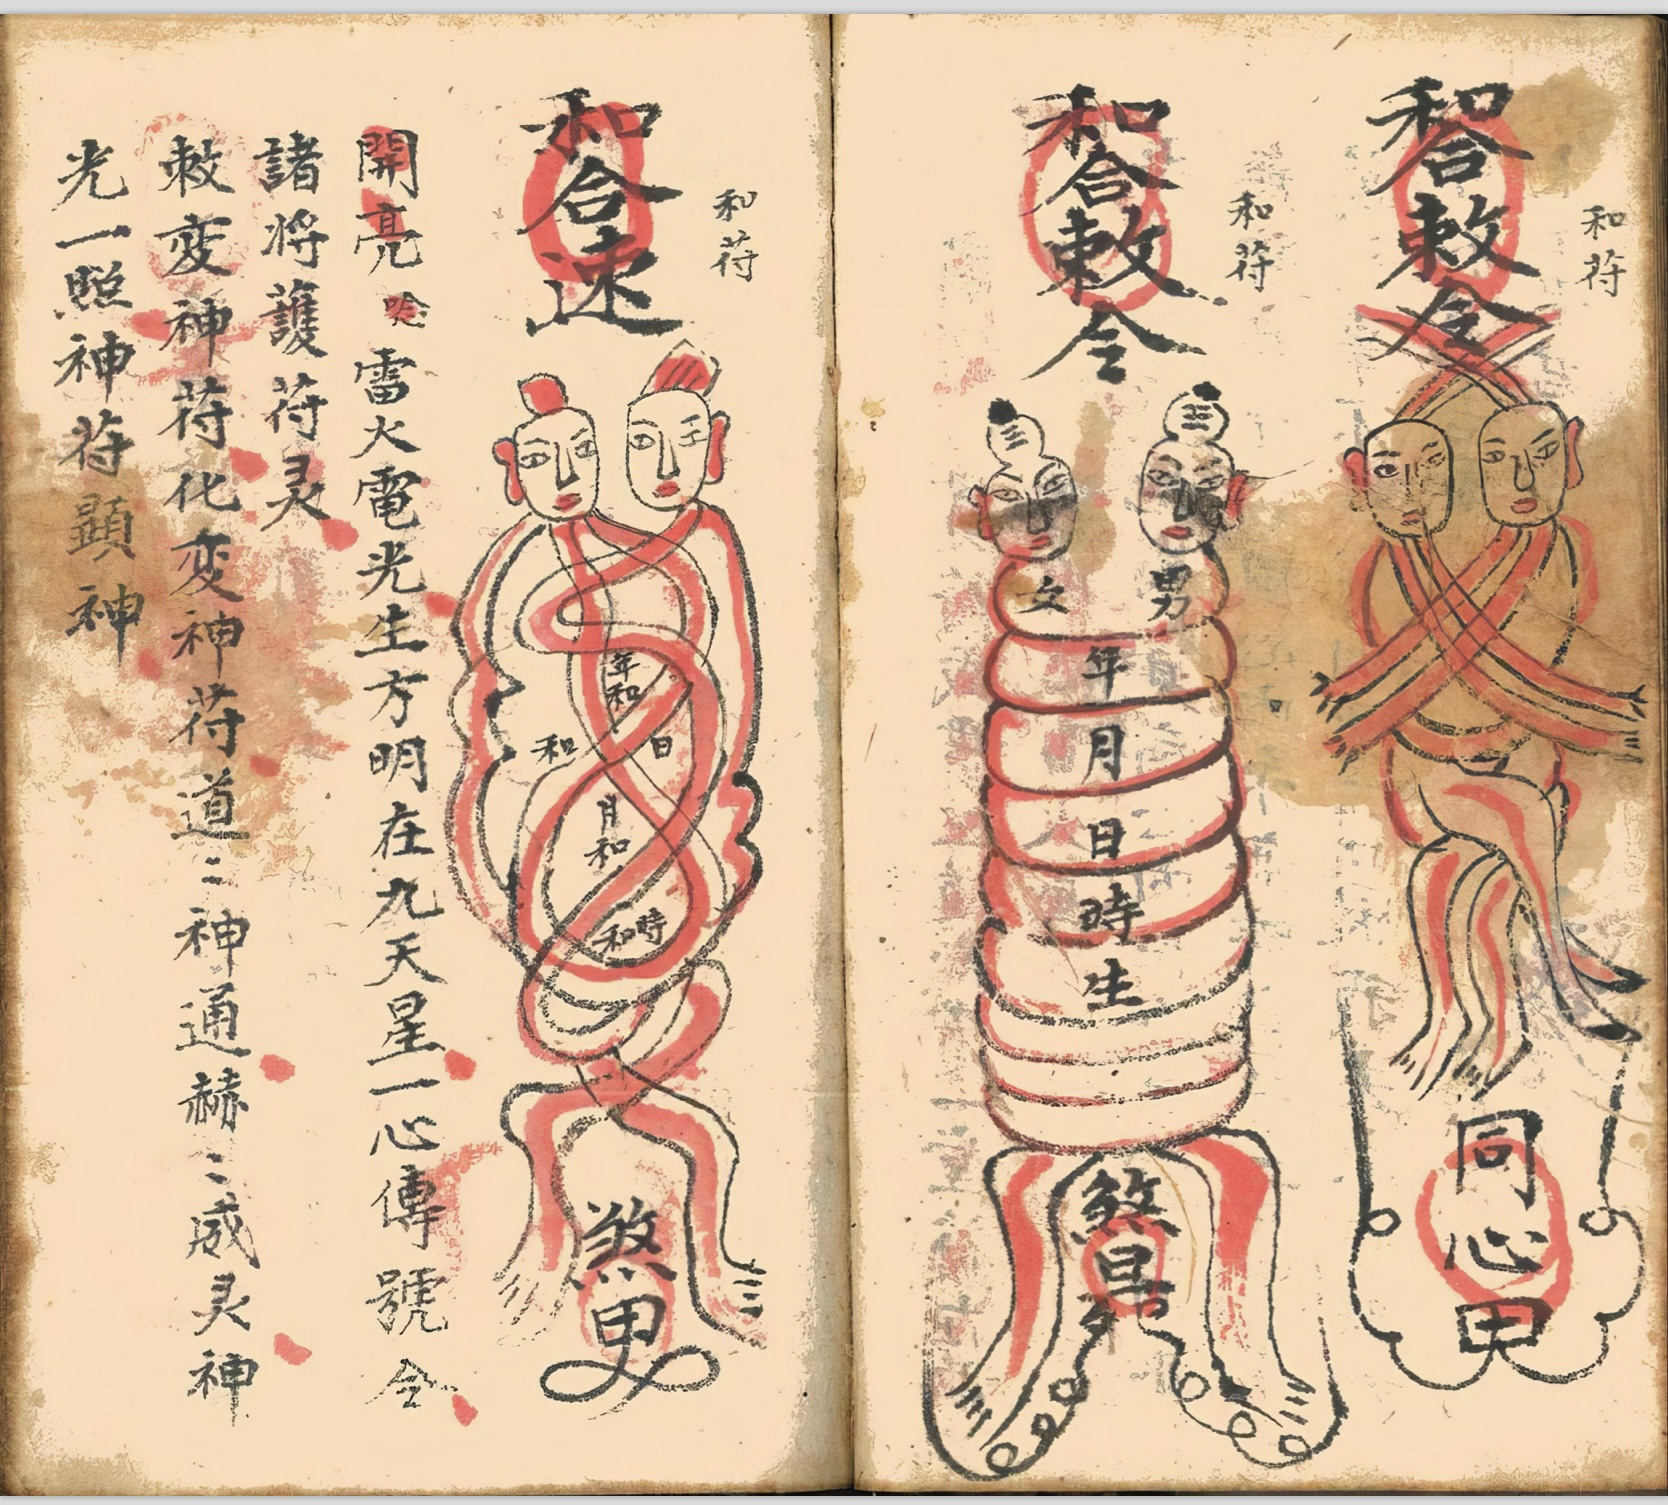 和符
和合敕令
同心
和符
和合敕令
女
男
年月日時生
煞
和符
和合速
年和
和
日
月和
和時
煞
開亮
雷火電光生方明在九天星一心傳號令
諸将護符灵
敕变神符化变神符道〻神通赫〻威灵神
光一照神符顯神